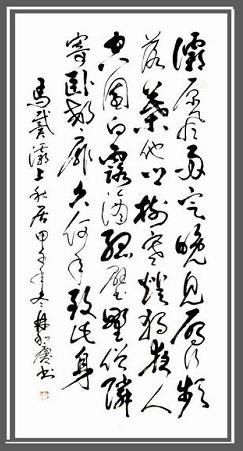 灞原风雨定晚見雁行頻
落葉他乡樹寒燈獨夜人
空園白露滴孤壁野僧隣
寄臥郊扉久何年致此身
馬戴灞上秋居甲午年冬書